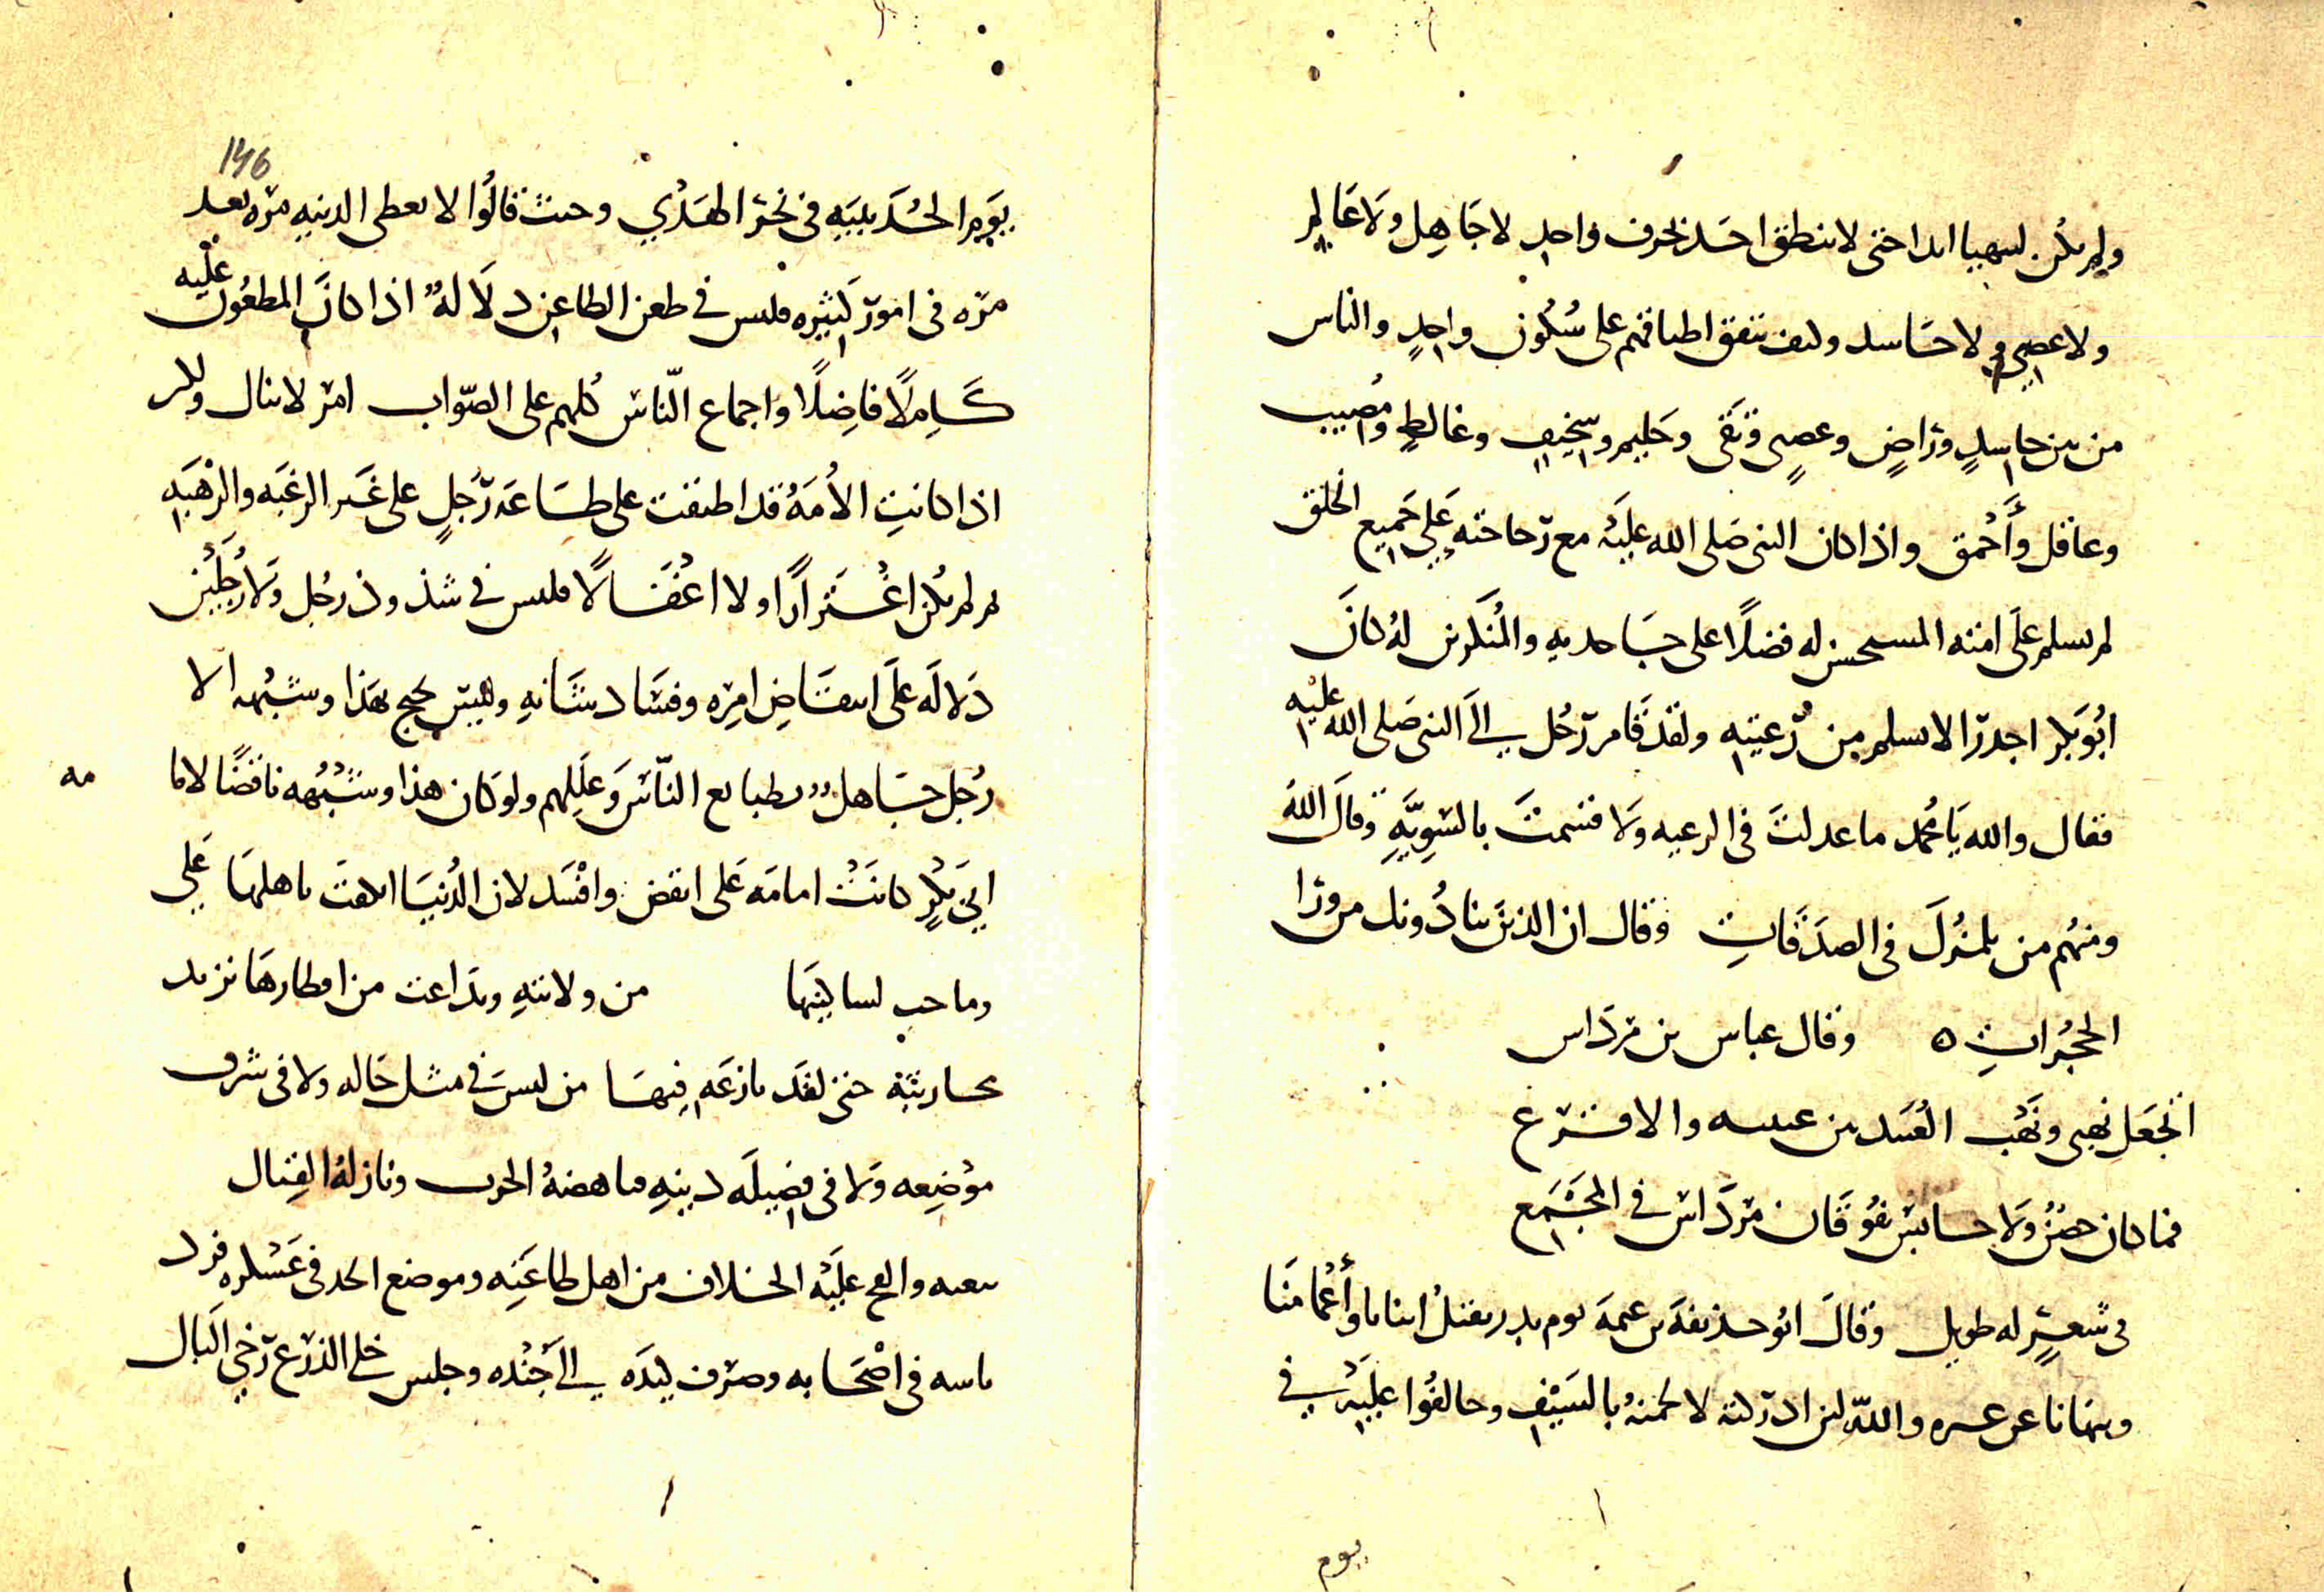 ولم يكن ليتهيا ابدا حتى لا ينطق احد بحرف واحد لا جاهل ولا عالم
ولا عصبي ولا حاسد وكيف تتفق اطباقهم على سكون واحد والناس
من بين حاسد وراض وعصي وتقي وحليم وسخيف وغالط ومصيب
وعاقل وأحمق واذا كان النبي صلى الله عليه مع رجاحته على جميع الخلق
لم يسلم على امته المستحسن له فضلا على جاحديه والمنكرين له كان
ابو بكر اجدر الا يسلم من رعيته ولقد قام رجل الى النبي صلى الله عليه
فقال والله يا محمد ما عدلت في الرعيه ولا قسمت بالسويه وقال الله
ومنهم من يلمزك في الصدقات وقال ان الذين ينادونك من ورا
الحجرات ٥ وقال عباس بن مرداس
اتجعل نهبي ونهب العبيد بين عيينه والاقرع
فما كان حصن ولا حابس يفوقان مرداس في المجمع
في شعر له طويل وقال ابو حذيفة بن عتبه يوم بدر يقتل ابنانا وأعمامنا
وينهانا عن والله لئن ادركته لالحمنه بالسيف وخالفوا عليه في
يوم
146
يوم الحديبيه في نحر الهدي وحيث قالوا لا نعطي الدنيه مره بعد
مره في امور كثيره فليس في طعن الطاعن دلاله اذا كان المطعون عليه
كاملا فاضلا واجماع الناس كلهم على الصواب امر لا ينال ولكن
اذا كانت الأمه قد اطبقت على طاعه رجل على غير الرغبه والرهبه
ثم لم يكن اغترارا ولا اغفالا فليس في شذوذ رجل ولا رجلين
دلاله على انتقاض امره وفساد شانه وليس يحتج بهذا وشبهه الا
رجل جاهل بطبايع الناس وعللهم ولو كان هذا وشبهه ناقضا لاما
مه
ابي بكر كانت امامه على انقض وافسد لان الدنيا بأهلها على
وماجت لساكنيها من ولايته وتداعت من اقطارها تريد
محاربته حتى لقد نازعه فيها من ليس في مثل حاله ولا في شرف
موضعه ولا في فضيله دينه فناهضه الحرب ونازله القتال
بنفسه والح عليه الخلاف من اهل طاعته وموضع الحد في عسكره فرد
باسه في اصحابه وصرف كيده الى جنده وجلس خلي الذرع رخي البال